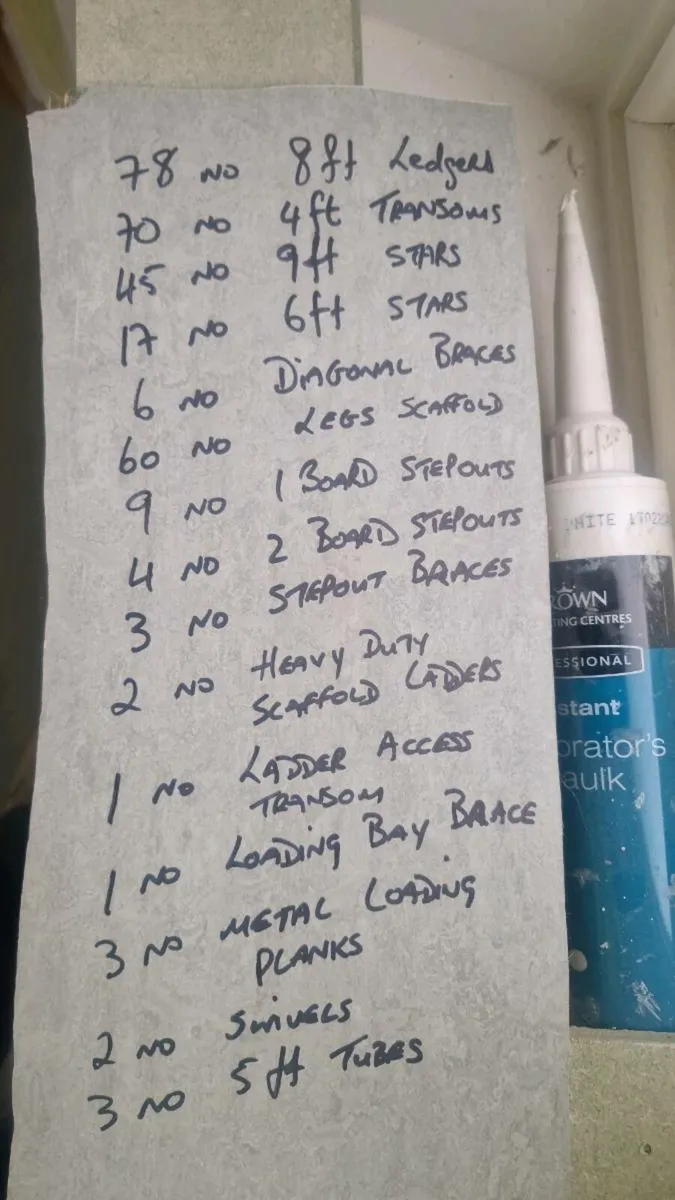 78 NO 8ft Ledgers
70 NO 4ft TRANSOMS
45 NO 9ft STARS
17 NO 6ft STARS
6 NO DIAGONAL BRACES
60 NO LEGS SCAFFOLD
9 NO 1 BOARD STEPOUTS
4 NO 2 BOARD STEPOUTS
3 NO STEPOUT BRACES
2 NO HEAVY DUTY
SCAFFOLD LADDERS
1 NO LADDER ACCESS
TRANSOM
1 NO LOADING BAY BRACE
3 NO METAL LOADING
PLANKS
2 NO SWIVELS
3 NO 5 ft TUBES
WHITE
OWN
ING CENTRES
ESSIONAL
stant
orator's
aulk